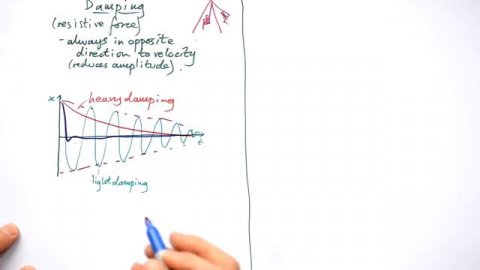 Damping
(resistive force)
- always in opposite
direction to velocity
(reduces amplitude).
x
heavy damping
t
light damping